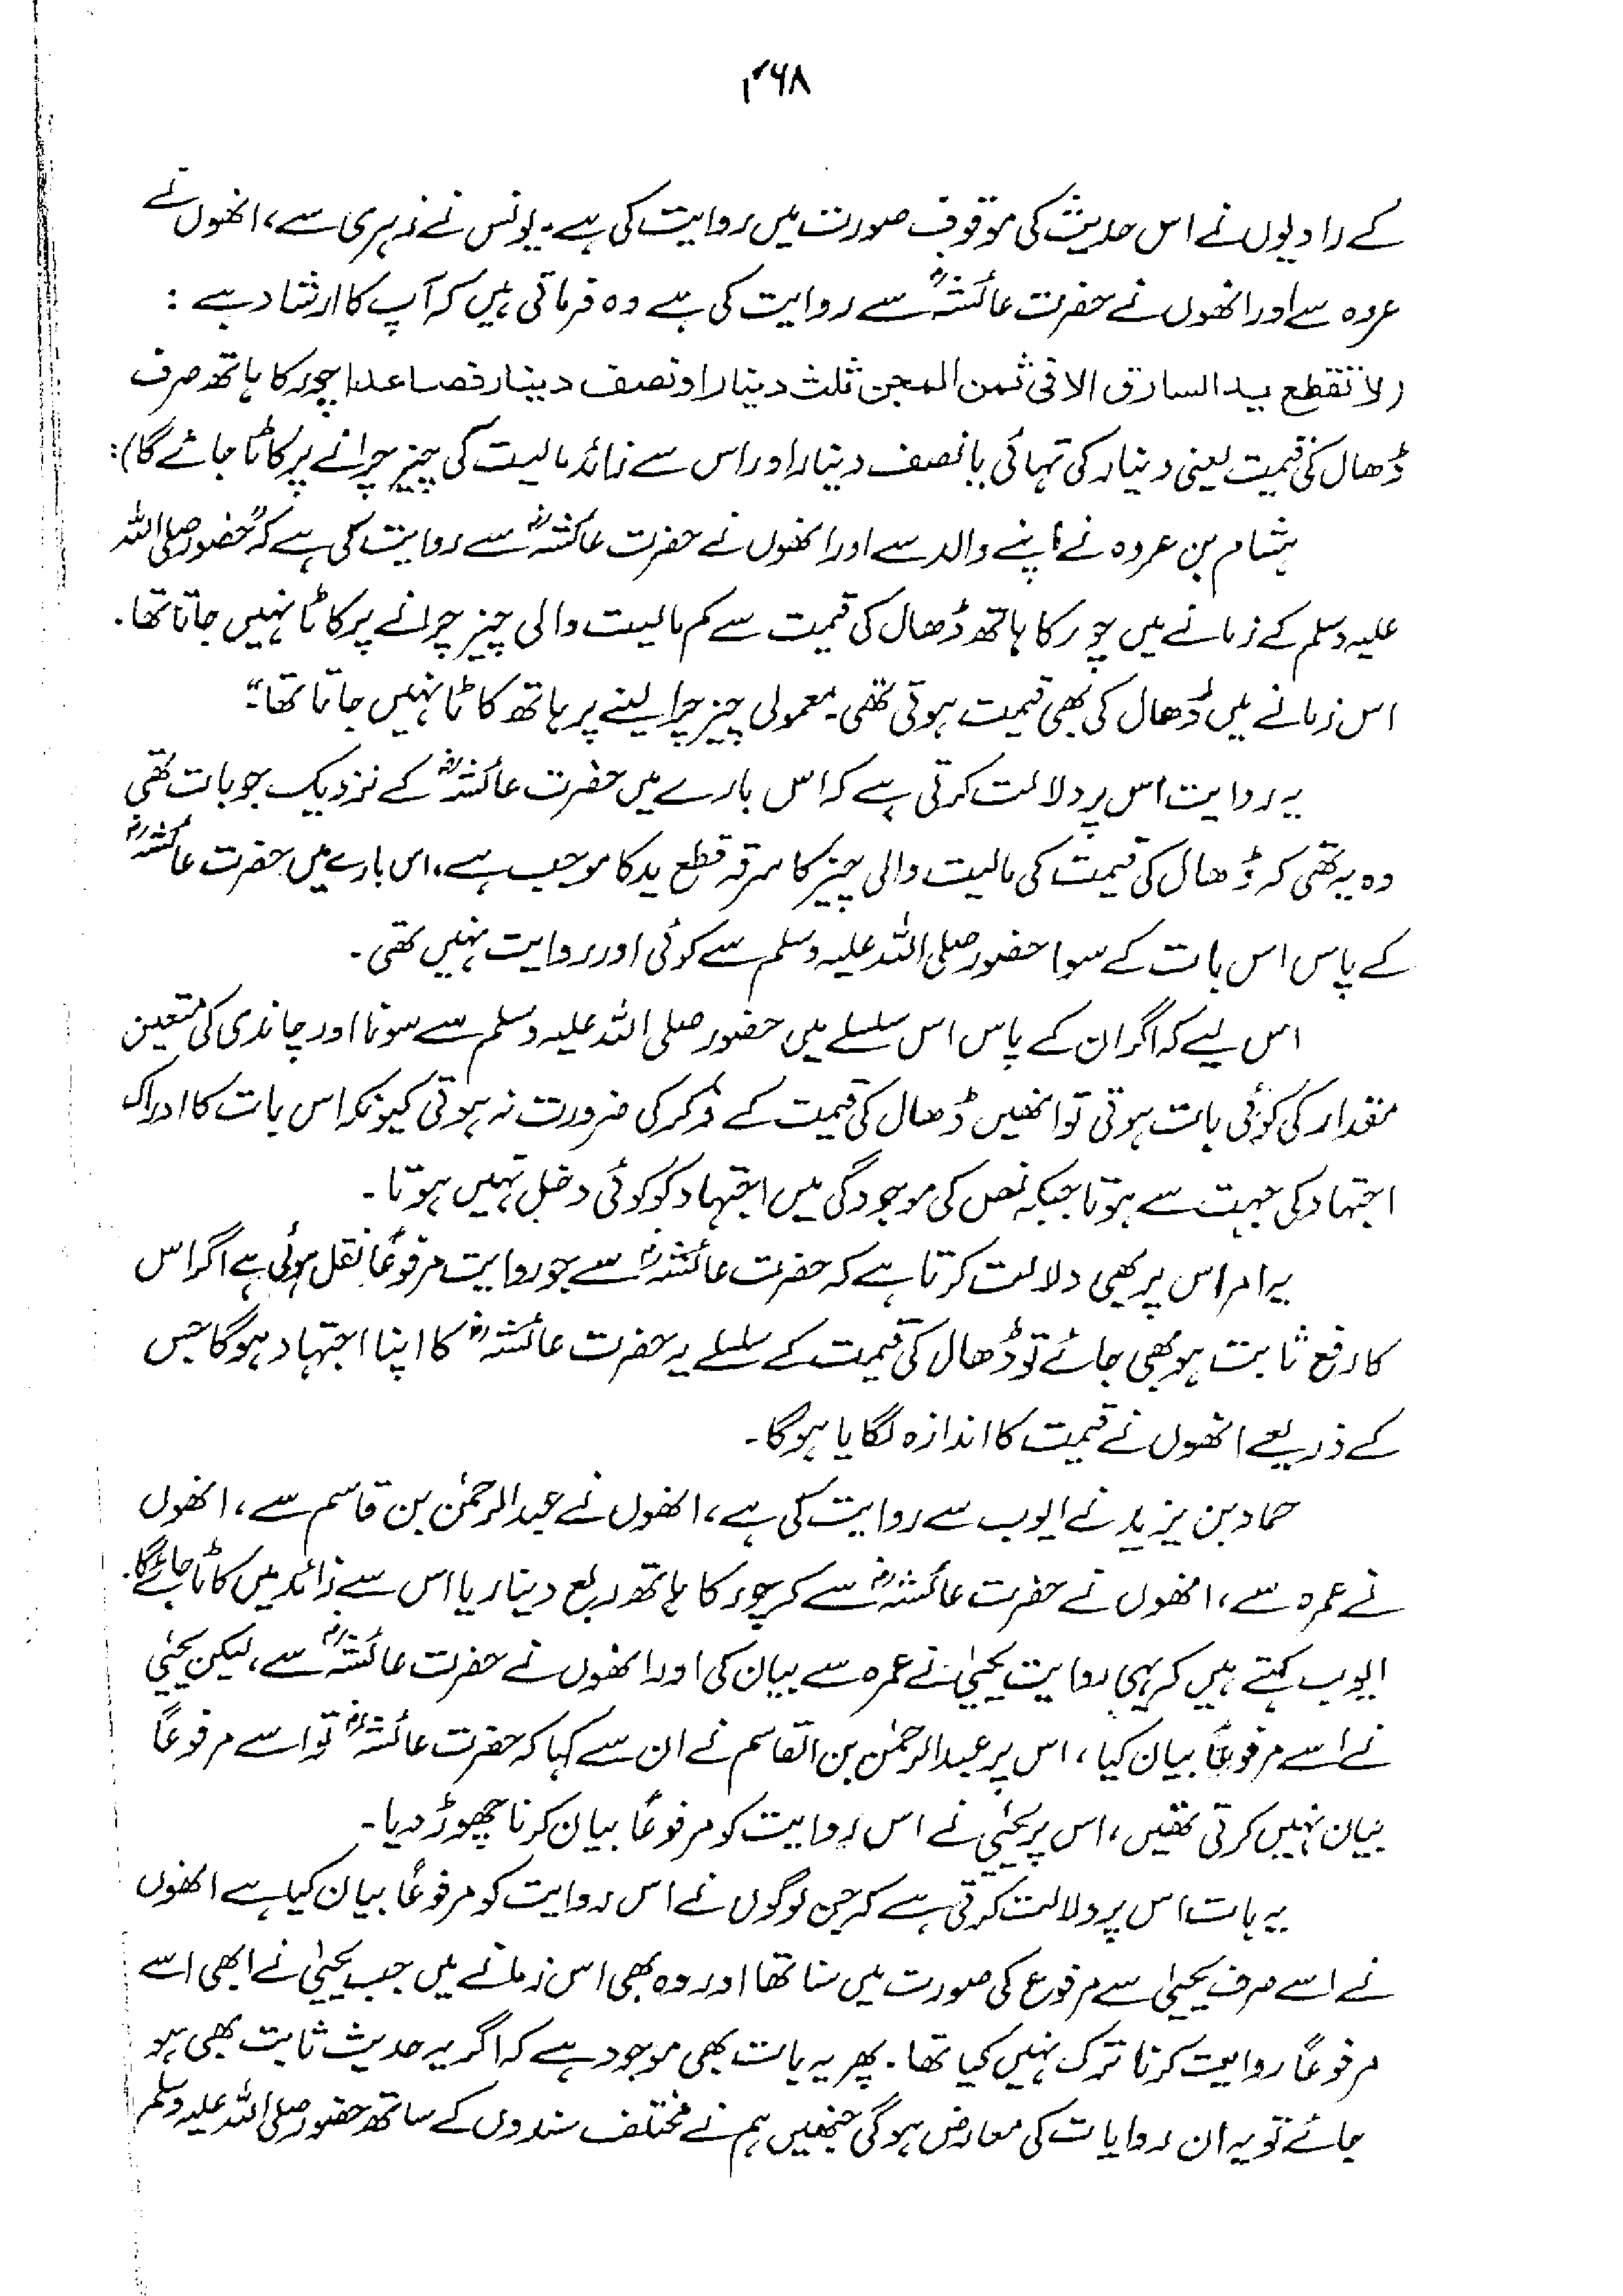 ۴۶۸
کے راویوں نے اس حدیث کی موقوف صورت میں روایت کی ہے۔ یونس نے زہری سے، انھوں نے
عروہ سے اور انھوں نے حضرت عائشہؓ سے روایت کی ہے وہ فرماتی ہیں کہ آپ کا ارشاد ہے :
(لا تقطع ید السارق الا فی ثمن المجن ثلث دینار او نصف دینار فصاعدا چور کا ہاتھ صرف
ڈھال کی قیمت یعنی دینار کی تہائی یا نصف دینار اور اس سے زائد مالیت کی چیز چرانے پر کاٹا جائے گا):
ہشام بن عروہ نے اپنے والد سے اور انھوں نے حضرت عائشہؓ سے روایت کی ہے کہ "حضور صلی اللہ
علیہ وسلم کے زمانے میں چور کا ہاتھ ڈھال کی قیمت سے کم مالیت والی چیز چرانے پر کاٹا نہیں جاتا تھا۔
اس زمانے میں ڈھال کی بھی قیمت ہوتی تھی۔ معمولی چیز چرا لینے پر ہاتھ کاٹا نہیں جاتا تھا"۔
یہ روایت اس پر دلالت کرتی ہے کہ اس بارے میں حضرت عائشہؓ کے نزدیک جو بات تھی
وہ یہ تھی کہ ڈھال کی قیمت کی مالیت والی چیز کا سرقہ قطع ید کا موجب ہے، اس بارے میں حضرت عائشہؓ
کے پاس اس بات کے سوا حضور صلی اللہ علیہ وسلم سے کوئی اور روایت نہیں تھی۔
اس لیے کہ اگر ان کے پاس اس سلسلے میں حضور صلی اللہ علیہ وسلم سے سونا اور چاندی کی متعین
مقدار کی کوئی بات ہوتی تو انھیں ڈھال کی قیمت کے ذکر کی ضرورت نہ ہوتی کیونکہ اس بات کا ادراک
اجتہاد کی جہت سے ہوتا جبکہ نص کی موجودگی میں اجتہاد کو کوئی دخل نہیں ہوتا۔
یہ امر اس پر بھی دلالت کرتا ہے کہ حضرت عائشہؓ سے جو روایت مرفوعًا نقل ہوئی ہے اگر اس
کا رفع ثابت ہو بھی جائے تو ڈھال کی قیمت کے سلسلے یہ حضرت عائشہؓ کا اپنا اجتہاد ہوگا جس
کے ذریعے انھوں نے قیمت کا اندازہ لگایا ہوگا۔
حماد بن یزید نے ایوب سے روایت کی ہے، انھوں نے عبدالرحمٰن بن قاسم سے، انھوں
نے عمرہ سے، انھوں نے حضرت عائشہؓ سے کہ چور کا ہاتھ ربع دینار یا اس سے زائد میں کاٹا جائے گا۔
ایوب کہتے ہیں کہ یہی روایت یحییٰ نے عمرہ سے بیان کی اور انھوں نے حضرت عائشہؓ سے، لیکن یحییٰ
نے اسے مرفوعًا بیان کیا، اس پر عبدالرحمٰن بن القاسم نے ان سے کہا کہ حضرت عائشہؓ تو اسے مرفوعًا
بیان نہیں کرتی تھیں، اس پر یحییٰ نے اس روایت کو مرفوعًا بیان کرنا چھوڑ دیا۔
یہ بات اس پر دلالت کرتی ہے کہ جن لوگوں نے اس روایت کو مرفوعًا بیان کیا ہے انھوں
نے اسے صرف یحییٰ سے مرفوع کی صورت میں سنا تھا اور وہ بھی اس زمانے میں جب یحییٰ نے ابھی اسے
مرفوعًا روایت کرنا ترک نہیں کیا تھا۔ پھر یہ بات بھی موجود ہے کہ اگر یہ حدیث ثابت بھی ہو
جائے تو یہ ان روایات کی معارض ہوگی جنھیں ہم نے مختلف سندوں کے ساتھ حضور صلی اللہ علیہ وسلم